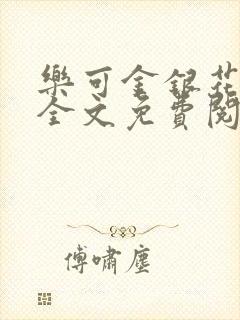 樂可金銀花
全文免費閱
傅嘯塵